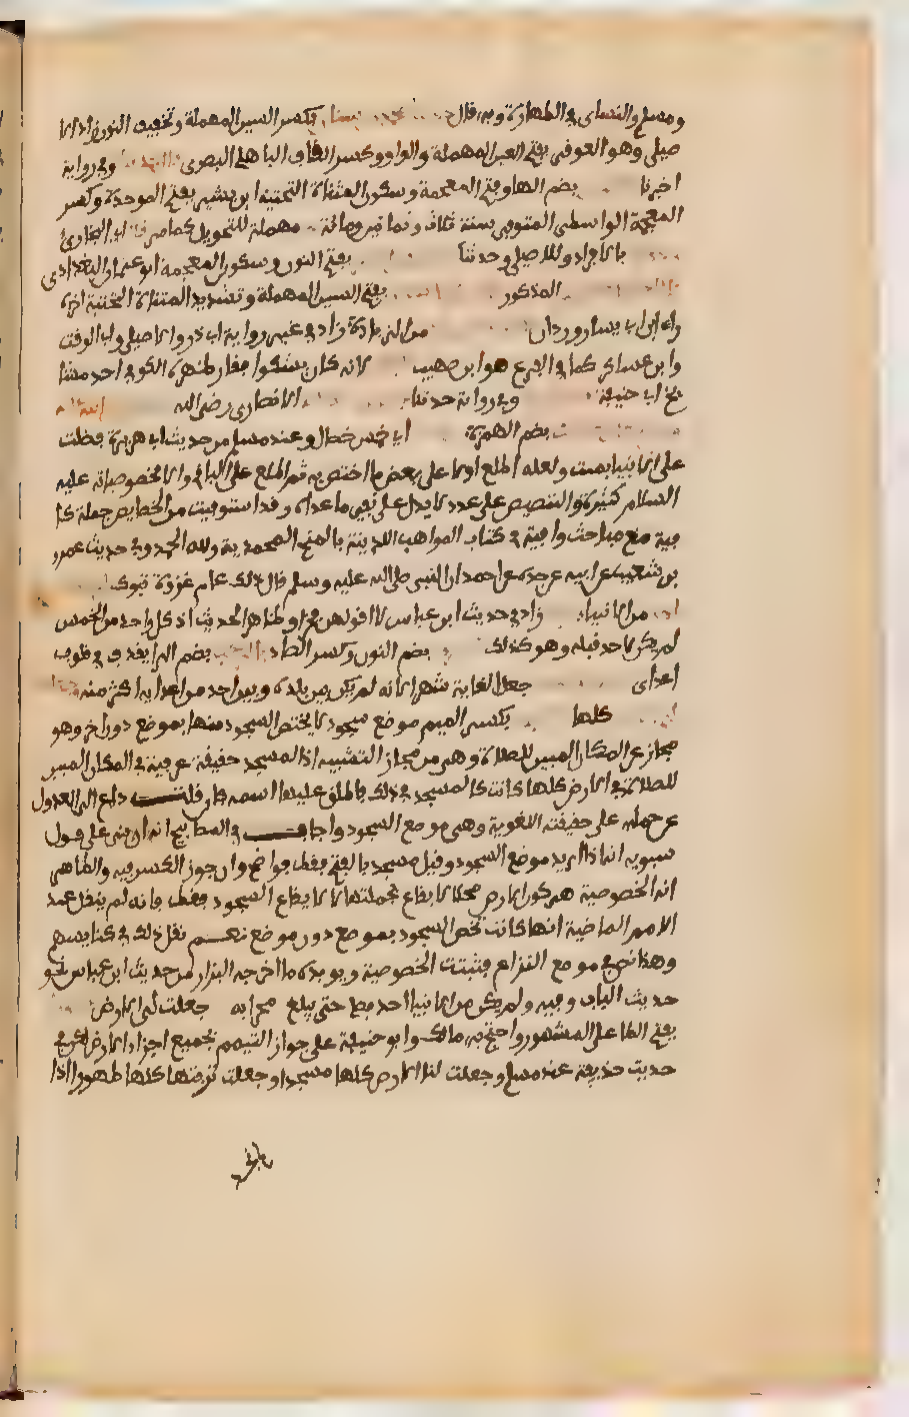 ومسلم والنساي في الطهارة وبه قال بكسر السين المهملة وتخفيف النون زاد الا
صيلي وهو العوفي بفتح العين المهملة والواو وكسر القاف الباهلي البصري وفي رواية
اخبرنا بضم الها وفتح المعجمة وسكون المثناة التحتية ابن بشير بفتح الموحدة وكسر
المعجمة الواسطي المتوفى سنة ثلاث وثمانين ومائة مهملة للتحويل كما مر البخاري
بالافراد وللاصيلي وحدثنا بفتح النون وسكون المعجمة ابو عثمان البغدادي
المذكور بفتح السين المهملة وتشديد المثناة التحتية اخره
راء ابن ابي يسار وردان زاد في غير رواية ابي ذر والاصيلي وابي الوقت
وابن عساكر كما في الفرع هو ابن صهيب لانه كان يشكوا فقار ظهره الكوفي احد مشا
يخ ابي حنيفة وفي رواية حدثنا الانصاري رضي الله
بضم الهمزة اي خمس خصال وعند مسلم من حديث ابي هريرة فضلت
على الانبيا بست ولعله اطلع اولا على بعض ما اختص به ثم اطلع على الباقي والا فخصوصياته عليه
السلام كثيرة والتنصيص على عدد لا يدل على نفي ما عداه وقد استوفيت من الخصايص جملة كا
فية مع مباحث وافية في كتاب المواهب اللدنية بالمنح المحمدية ولله الحمد وفي حديث عمرو
بن شعيب عن ابيه عن جده عن احمد ان النبي صلى الله عليه وسلم قال ذلك عام غزوة تبوك
من الانبياء زاد في حديث ابن عباس لا اقولهن فخرا وظاهر الحديث ان كل واحد من الخمس
لم يكن لاحد قبله وهو كذلك بضم النون وكسر الصاد بضم الرا يقذف في قلوب
اعداي جعل الغاية شهرا لانه لم يكن بين بلده وبين احد من اعدايه اكثر منه
كلها بكسر الميم موضع سجود لا يختص السجود منها بموضع دون اخر وهو
مجاز عن المكان المبني للصلاة وهي من مجاز التشبيه اذ المسجد حقيقة عرفية في المكان المبني
للصلاة في الارض كلها كانت كالمسجد في ذلك فاطلق عليها اسمه فان قلت داع الى العدول
عن حمله على حقيقته اللغوية وهي موضع السجود واجاب في المصابيح انه ان بني على قول
سبويه انه اذا اريد موضع السجود وقيل مسجد بالفتح فقط فواضح وان جوز الكسر فيه والظاهر
انه الخصوصية هي كون الارض محلا لايقاع بجملتها لا لايقاع السجود فقط فانه لم ينقل عند
الامم الماضية انها كانت تخص السجود بموضع دون موضع نعم نقل ذلك في كنايسهم
وهذا خرج موضع التزام فثبتت الخصوصية ويويده ما اخرجه البزار من حديث ابن عباس نحو
حديث الباب وفيه ولم يكن من الانبيا احد يصلي حتى يبلغ محرابه جعلت لي الارض
بفتح الطا على المشهور واحتج به مالك وابو حنيفة على جواز التيمم بجميع اجزاء الارض لكن في
حديث حذيفة عند مسلم وجعلت لنا الارض كلها مسجدا وجعلت تربتها كلها طهورا اذا